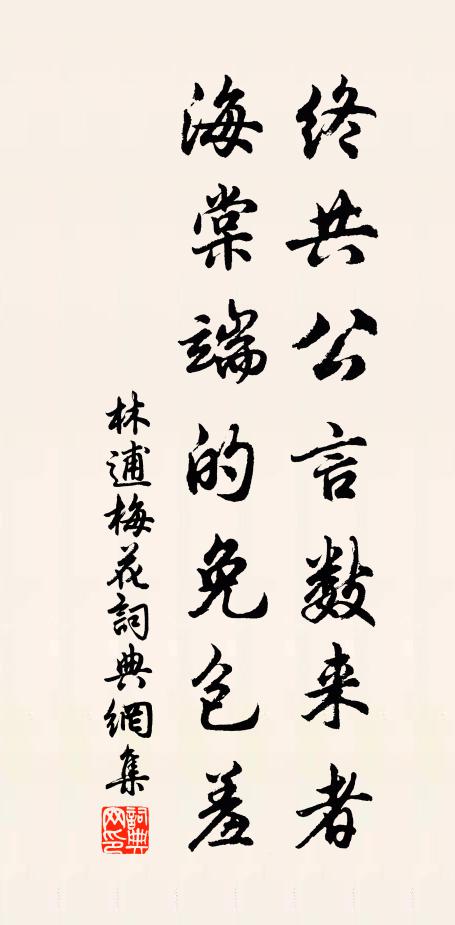 終共公言數来者
海棠端的免包羞
林逋梅花詞典網集
詞典网印